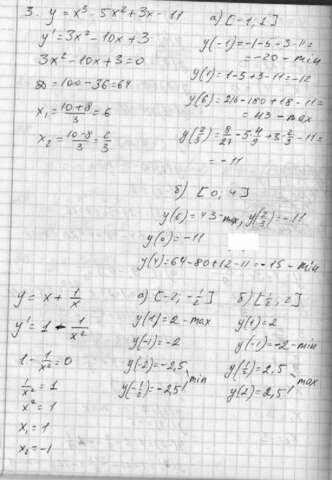 3. y = x³ - 5x² + 3x - 11
y' = 3x² - 10x + 3
3x² - 10x + 3 = 0
D = 100 - 36 = 64
x₁ = (10+8)/3 = 6
x₂ = (10-8)/3 = 2/3
а) [-1, 2]
y(-1) = -1-5-3-11 =
= -20 - min
y(1) = 1-5+3-11 = -12
y(6) = 216-180+18-11 =
= 43 - max
y(2/3) = 8/27 - 5 4/9 + 3·2/3 - 11 =
= -11
б) [0, 4]
y(6) = 43 - max, y(2/3) = -11
y(0) = -11
y(4) = 64-80+12-11 = -15 - min
y = x + 1/x
y' = 1 - 1/x²
1 - 1/x² = 0
1/x² = 1
x² = 1
x₁ = 1
x₂ = -1
а) [-2, -1/2]
y(1) = 2 - max
y(-1) = -2
y(-2) = -2,5
y(-1/2) = -2,5
min
б) [1/2, 2]
y(1) = 2
y(-1) = -2 - min
y(1/2) = 2,5
y(2) = 2,5
max